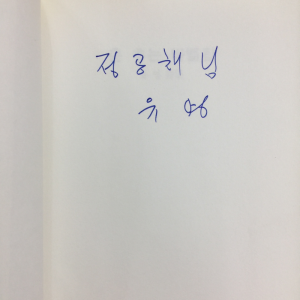 정공채 님
유 영